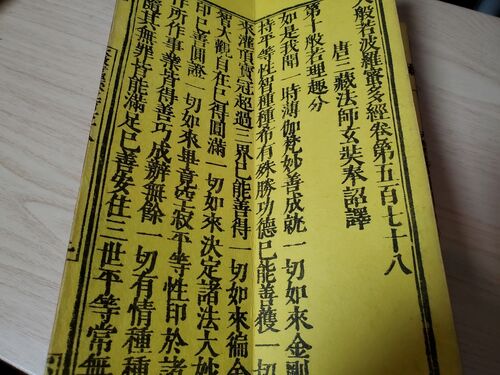 大般若波羅蜜多經卷第五百七十八
唐三藏法師玄奘奉 詔譯
第十般若理趣分
如是我聞一時薄伽梵妙善成就一切如來金剛
持平等性智種種希有殊勝功德已能善獲一切
來灌頂寶冠超過三界已能善得一切如來徧金
智大觀自在已得圓滿一切如來決定諸法大妙
印已善圓證一切如來畢竟空寂平等性印於諸
作所作事業皆得善巧成辦無餘一切有情種種
隨其無罪皆能滿足已善安住三世平等常無